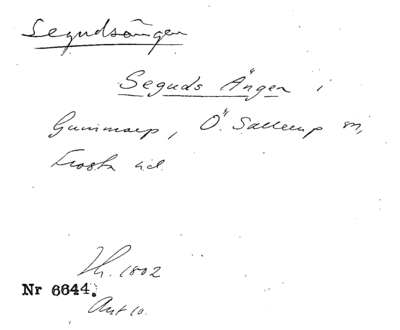 Segudsängen
Seguds Ängen i
Gummarp, Ö. Sallerup sn,
Frosta hd.
Th. 1802
Nr 6644.
Akt 10.